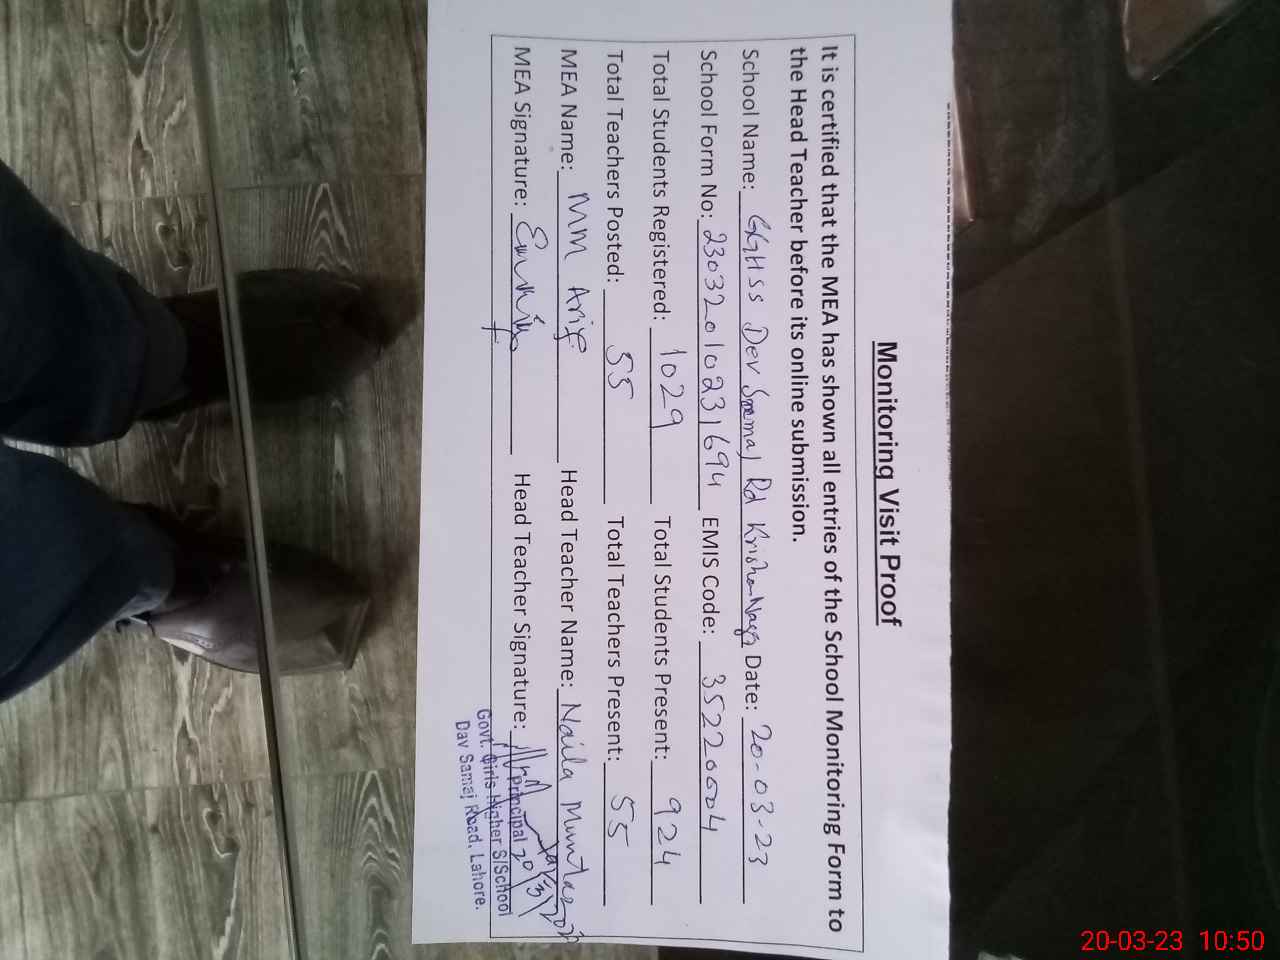 Monitoring Visit Proof
It is certified that the MEA has shown all entries of the School Monitoring Form to
the Head Teacher before its online submission.
School Name: GGHSS Dev Samaj Rd Krishan Nagar Date: 20-03-23
School Form No: 23032010231694 EMIS Code: 35220004
Total Students Registered: 1029 Total Students Present: 924
Total Teachers Posted: 55 Total Teachers Present: 55
MEA Name: MM Arif Head Teacher Name: Naila Mumtaz
MEA Signature: Head Teacher Signature:
Principal
Govt. Girls Higher S/School
Dav Samaj Road, Lahore.
20-03-23 10:50